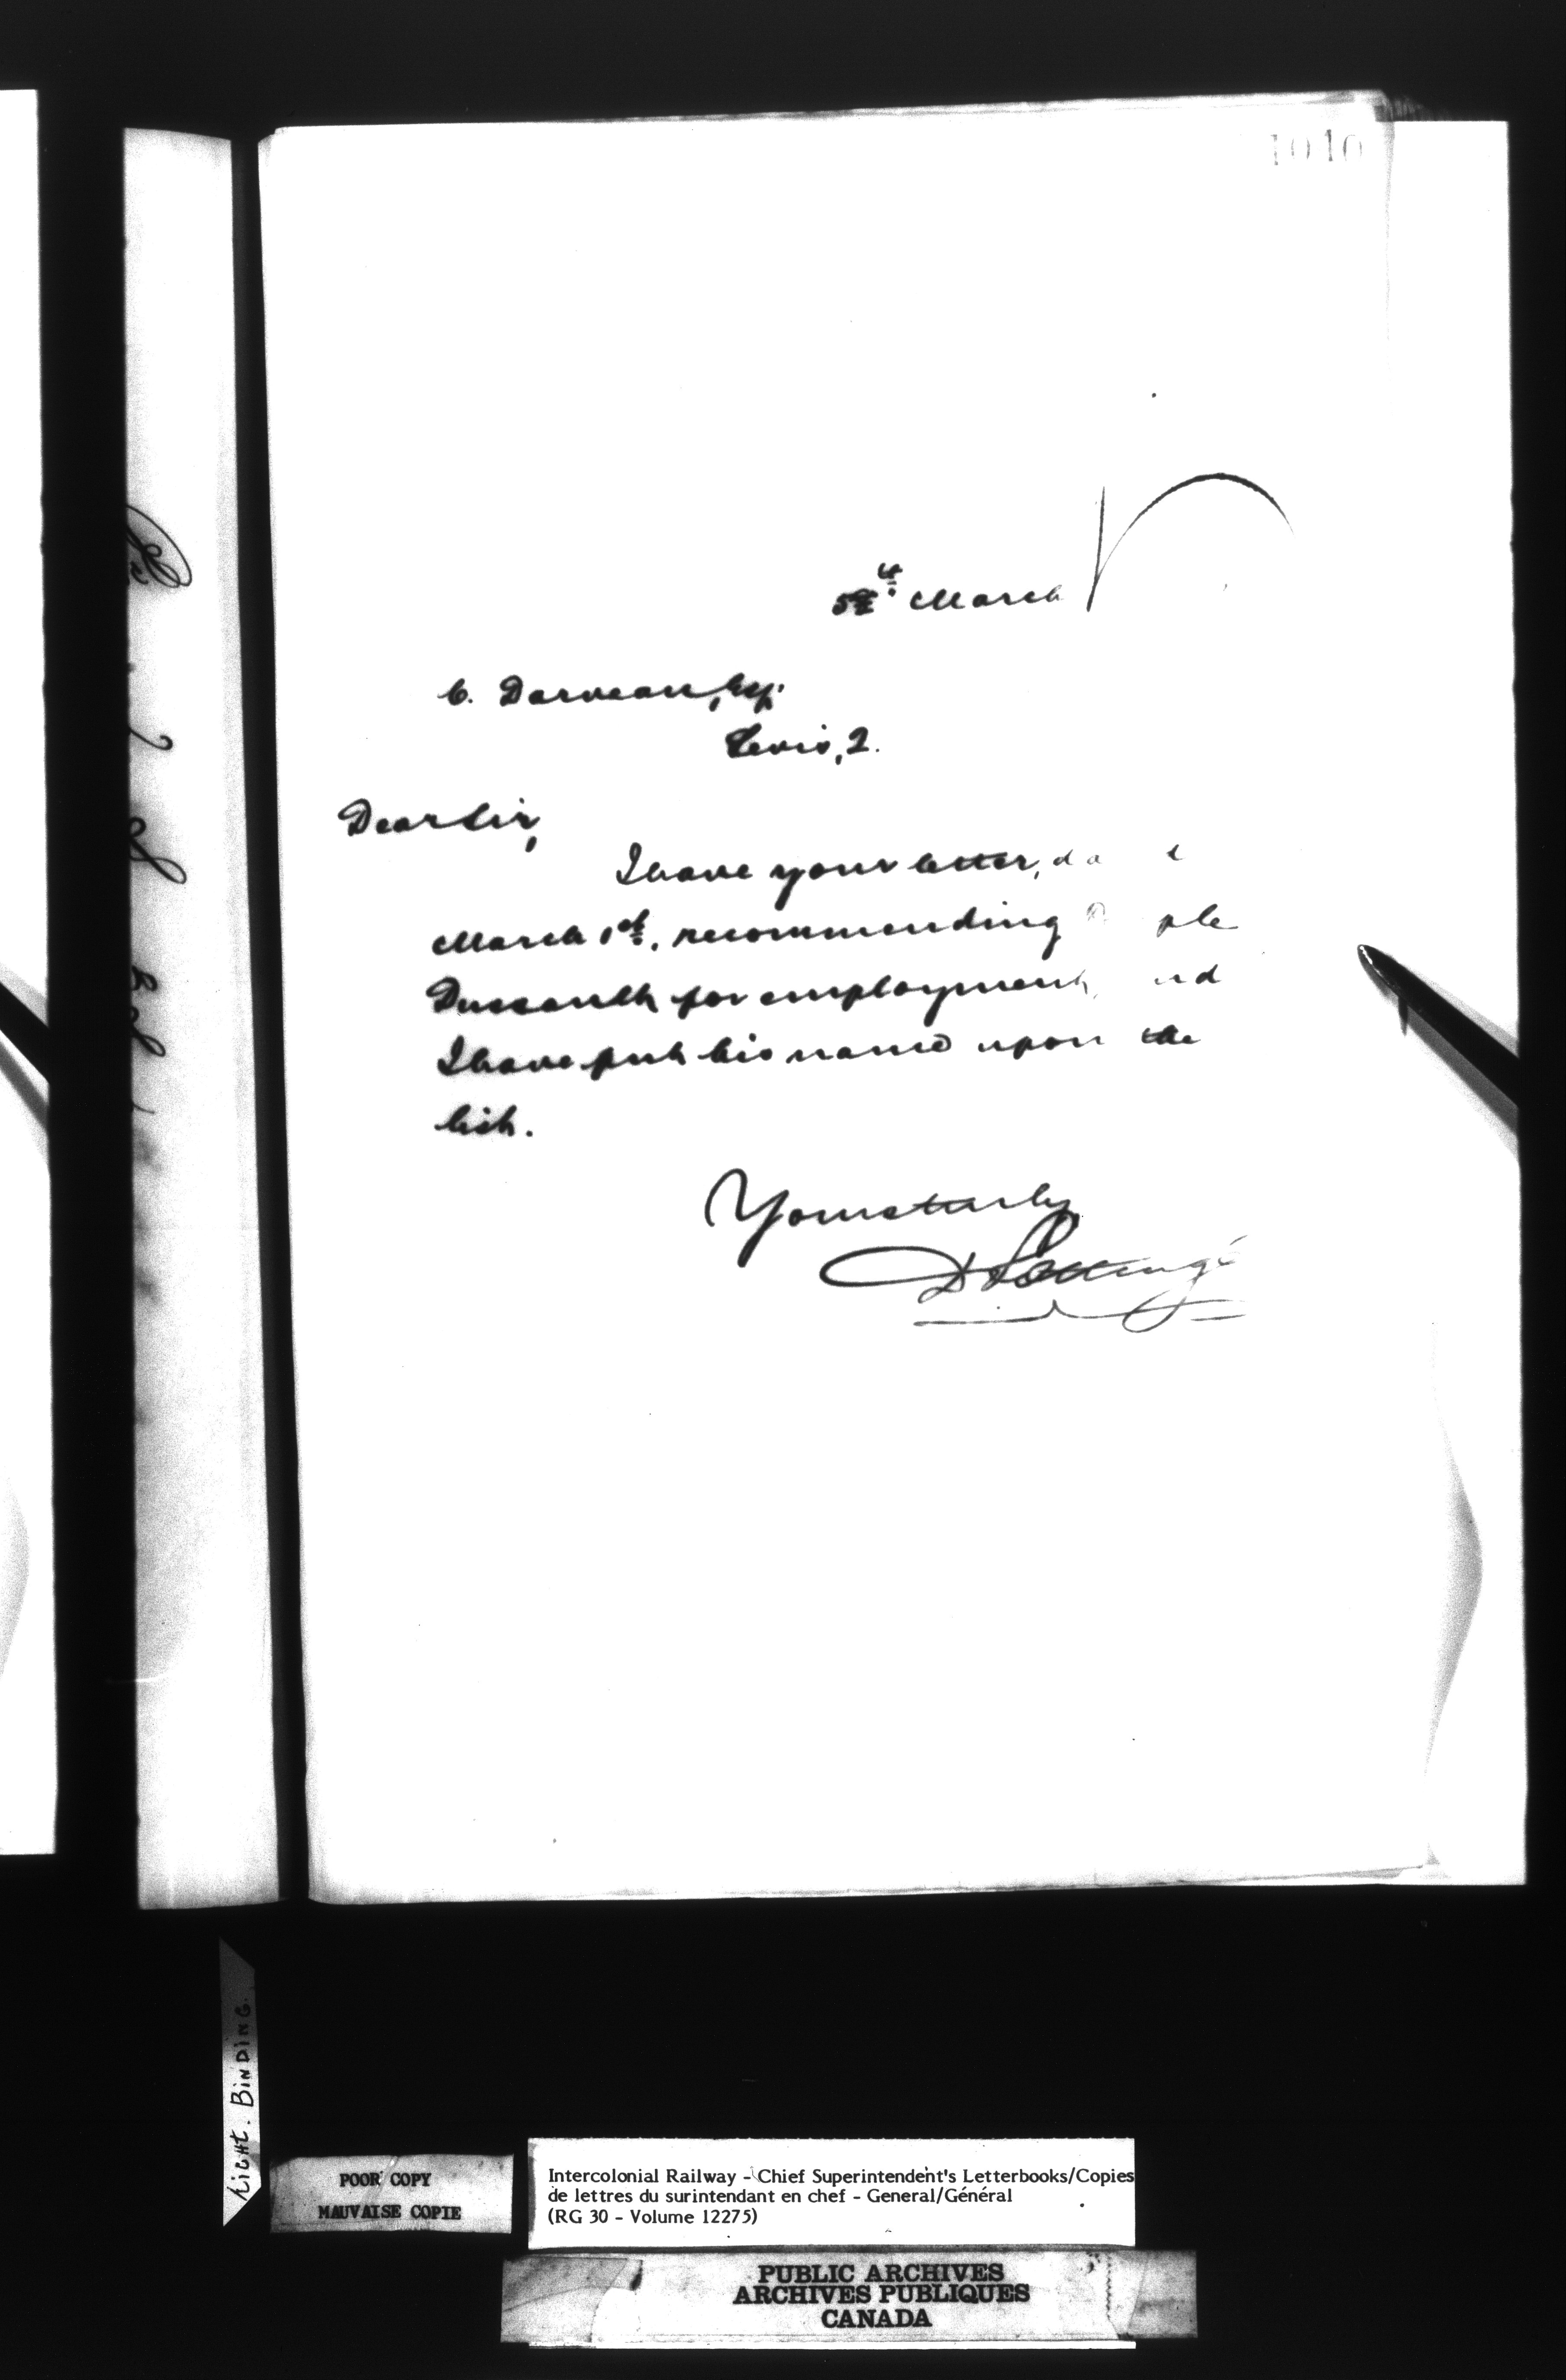 1010
March
C. Darveau, Esq.
Levis, Q.
Dear Sir,
I have your letter,
March 1st, recommending
Dussault for employment,
I have put his name upon the
list.
Yours truly
D Pottinge
LIGHT. BINDING.
POOR COPY
MAUVAISE COPIE
Intercolonial Railway - Chief Superintendent's Letterbooks/Copies
de lettres du surintendant en chef - General/Général
(RG 30 - Volume 12275)
PUBLIC ARCHIVES
ARCHIVES PUBLIQUES
CANADA